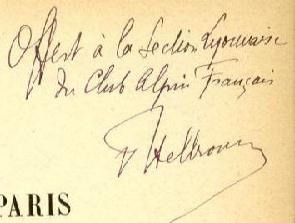 Offert à la Section Lyonnaise
du Club Alpin Français
P Helbronner
PARIS